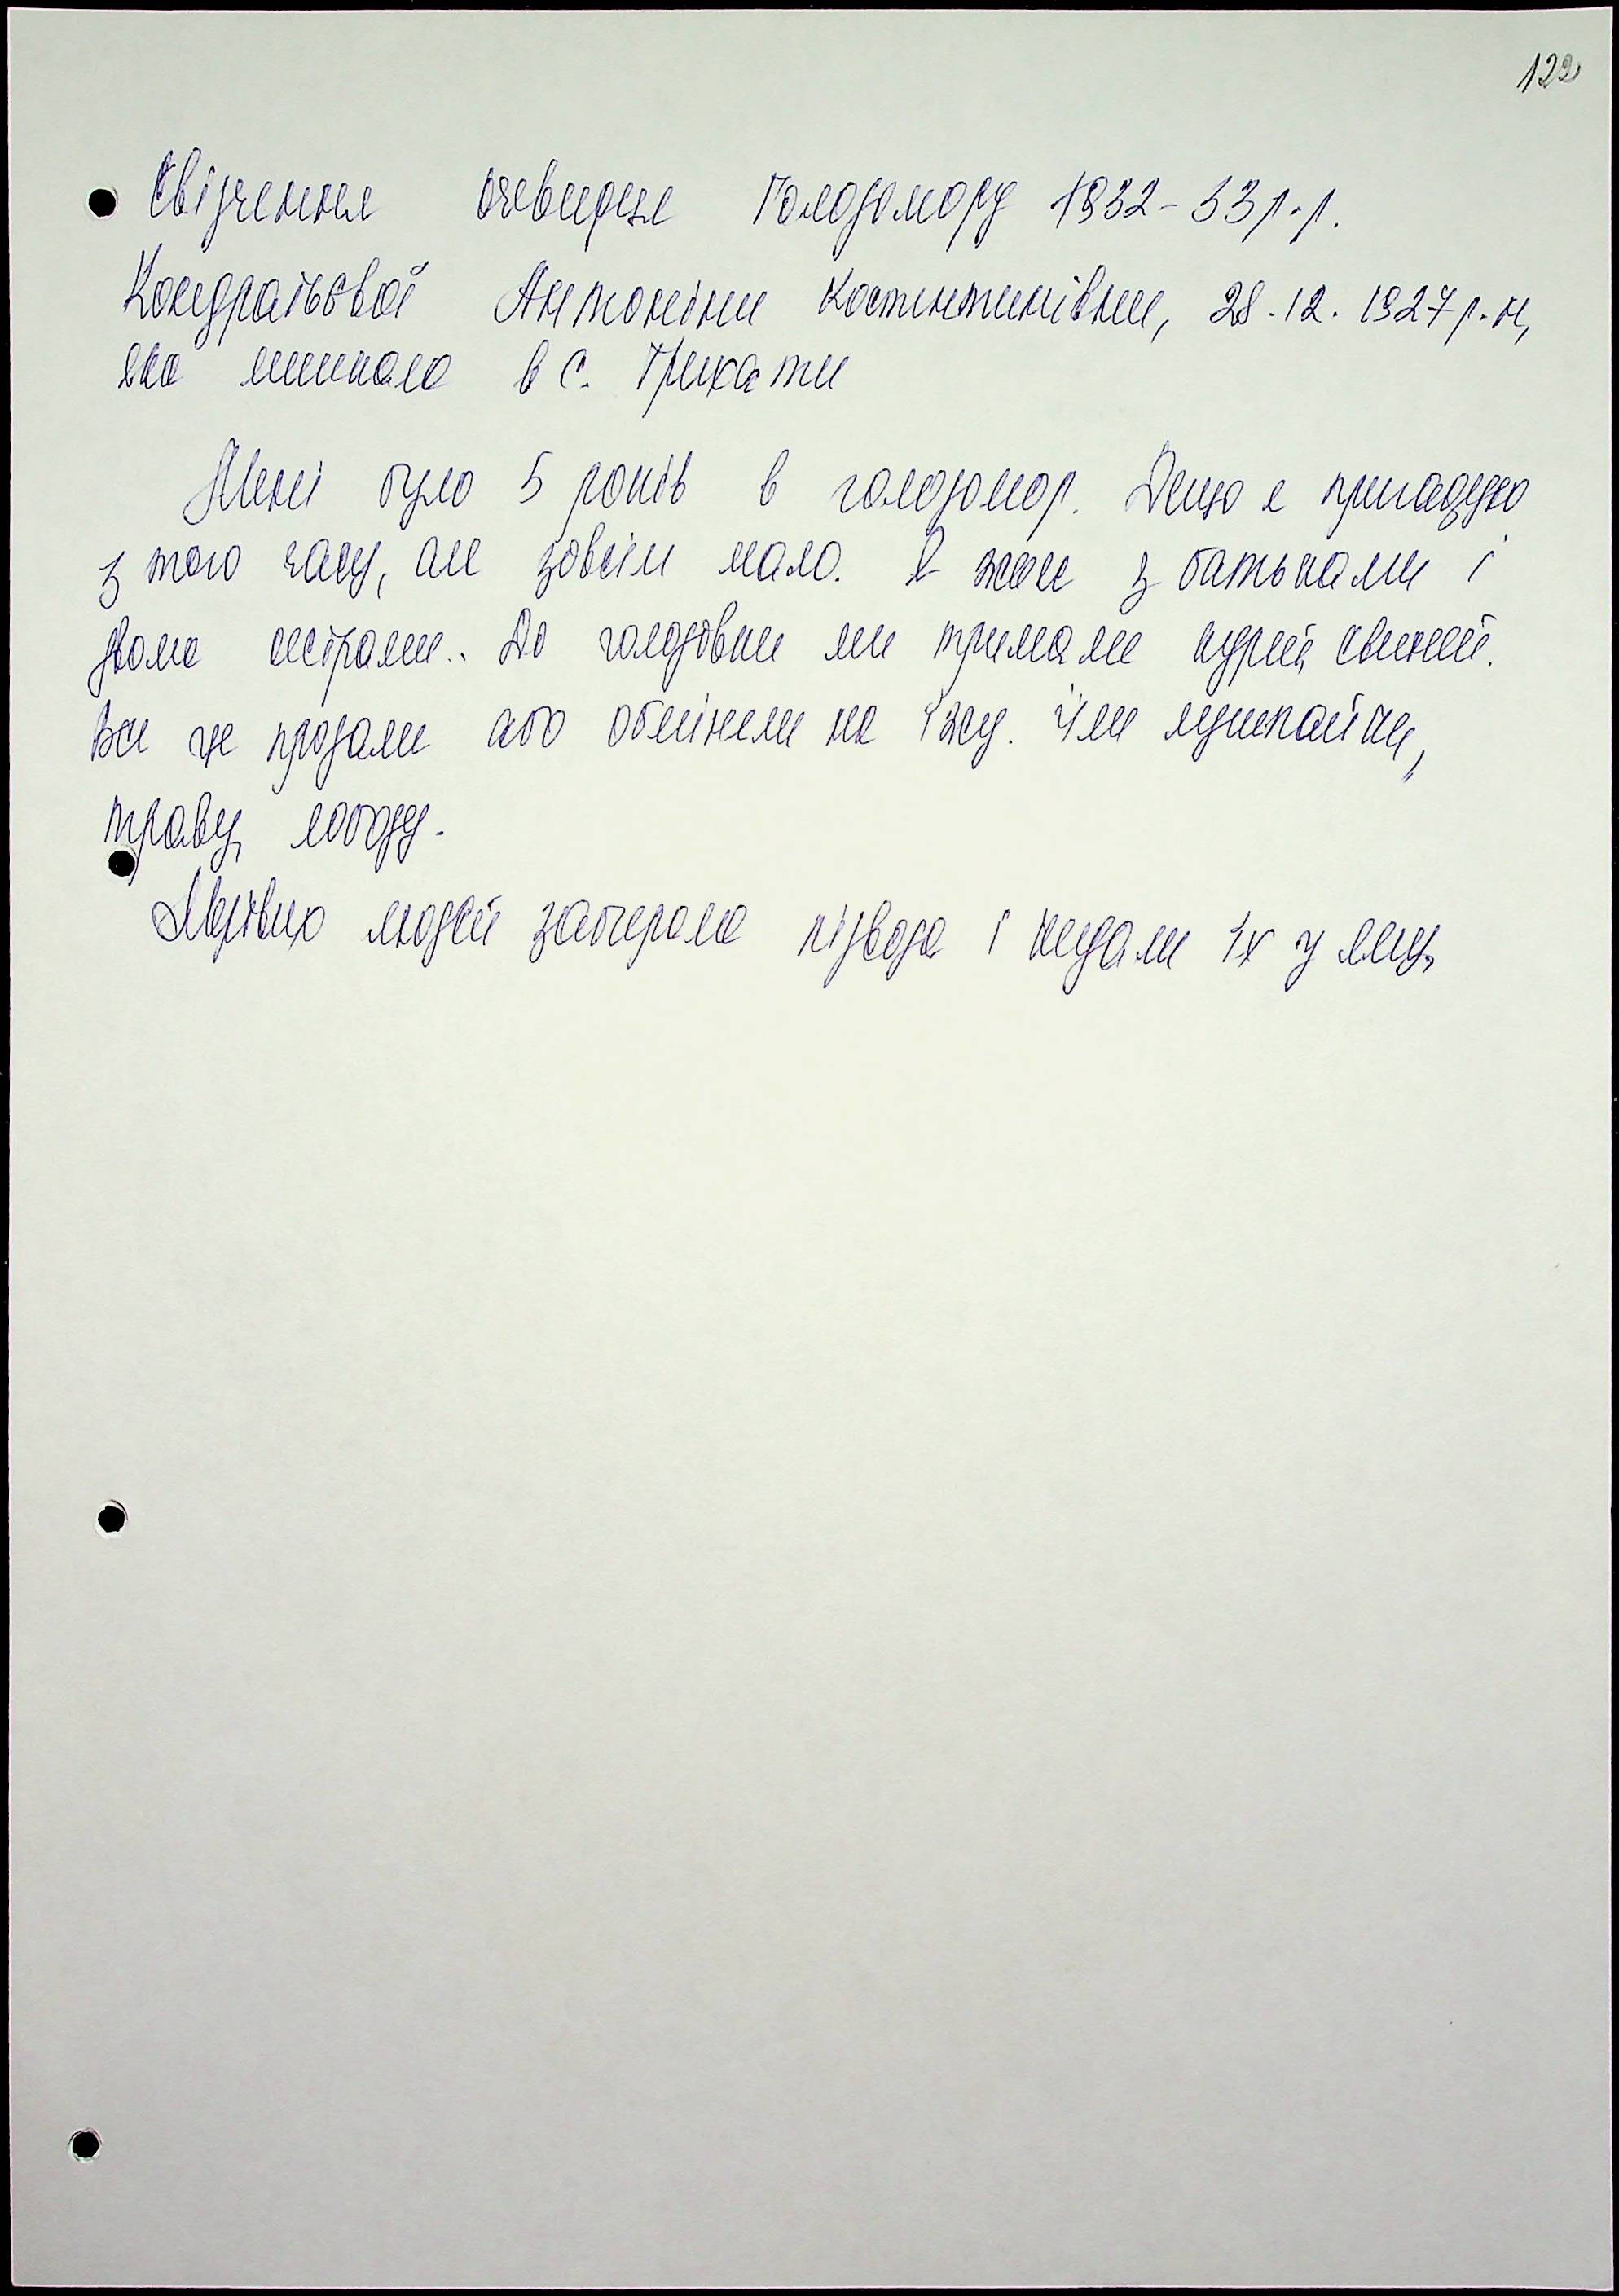 122
Свідчення очевидця Голодомору 1932-33 р.р.
Кондратьєвої Антоніни Костянтинівни, 28.12.1927 р.н,
яка мешкала в с. Трихати
Мені було 5 років в голодомор. Дещо я пригадую
з того часу, але зовсім мало. Я жили з батьками і
двома сестрами. До голодовки ми тримали курей, свиней.
Все це продали або обміняли на їжу. Їли
траву, лободу.
Мертвих людей забирала підвода і кидали їх у яму.